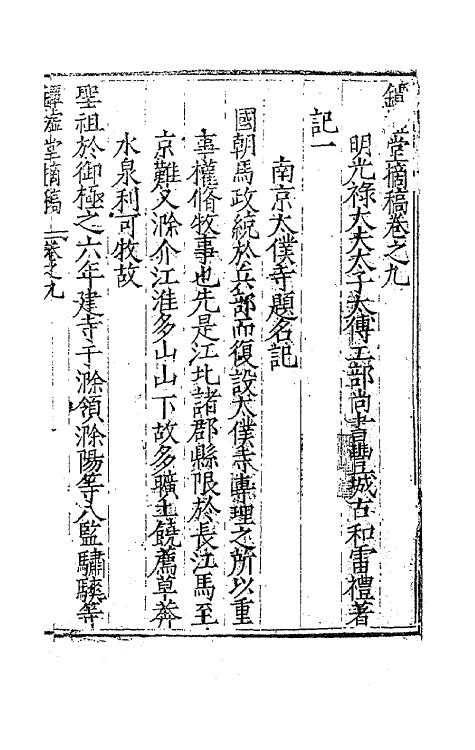 鐔堂摘稿卷之九
明光祿大夫太子太傅工部尚書豐城古和雷禮著
記一
南京太僕寺題名記
國朝馬政統於兵部而復設太僕寺專理之所以重
事權脩牧事也先是江北諸郡縣限於長江馬至
京難又滁介江淮多山山下故多曠土饒薦草莽
水泉利可牧故
聖祖於御極之六年建寺于滁領滁陽等八監驌騻等
鐔墟堂摘稿 卷之九